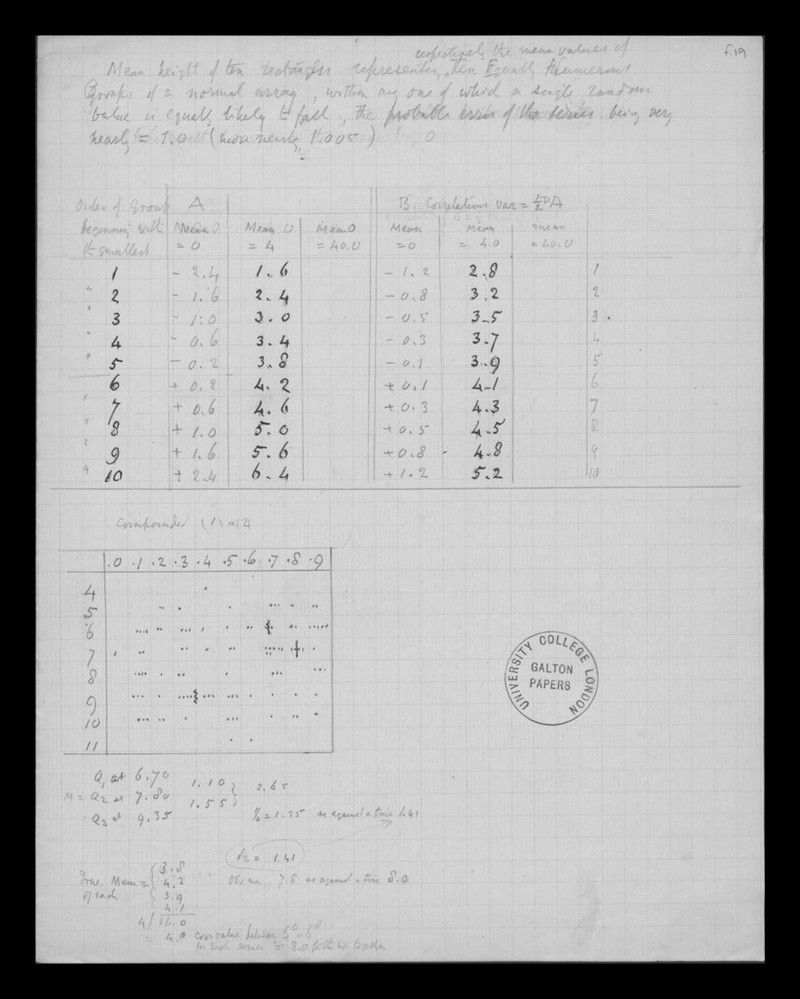 f. 19
respectively the mean values of
Mean height of ten rectangles representing ten Equally Numerous
Groups of a normal array, within any one of which a single random
value is equally likely to fall, the probable error of the series being very
nearly = 1.0 (more nearly 1.005)
Order of Group A B. Correlations var =
beginning with Mean 0 Mean 0 Mean 0 Mean Mean mean
the smallest = 0 = 4 = 40.0 = 0 = 4.0 = 40.0
1 - 2.4 1.6 - 1.2 2.8 1
" 2 - 1.6 2.4 - 0.8 3.2 2
" 3 - 1.0 3.0 - 0.5 3.5 3
" 4 - 0.6 3.4 - 0.3 3.7 4
" 5 - 0.2 3.8 - 0.1 3.9 5
6 + 0.2 4.2 + 0.1 4.1 6
" 7 + 0.6 4.6 + 0.3 4.3 7
" 8 + 1.0 5.0 + 0.5 4.5 8
" 9 + 1.6 5.6 + 0.8 4.8 9
" 10 + 2.4 6.4 + 1.2 5.2 10
.0 .1 .2 .3 .4 .5 .6 .7 .8 .9
4
5
6
7
8
9
10
11
UNIVERSITY COLLEGE LONDON
GALTON
PAPERS
Q1 at 6.70 1.10 } 2.65
M = Q2 at 7.80 1.55
Q3 at 9.35 ½ = 1.35 as against a true 1.41
= 1.41
7.8 as against a true 8.0
True Mean = { 3.8
of each 4.2
3.9
4.1
4 / 16.0
= 4.0